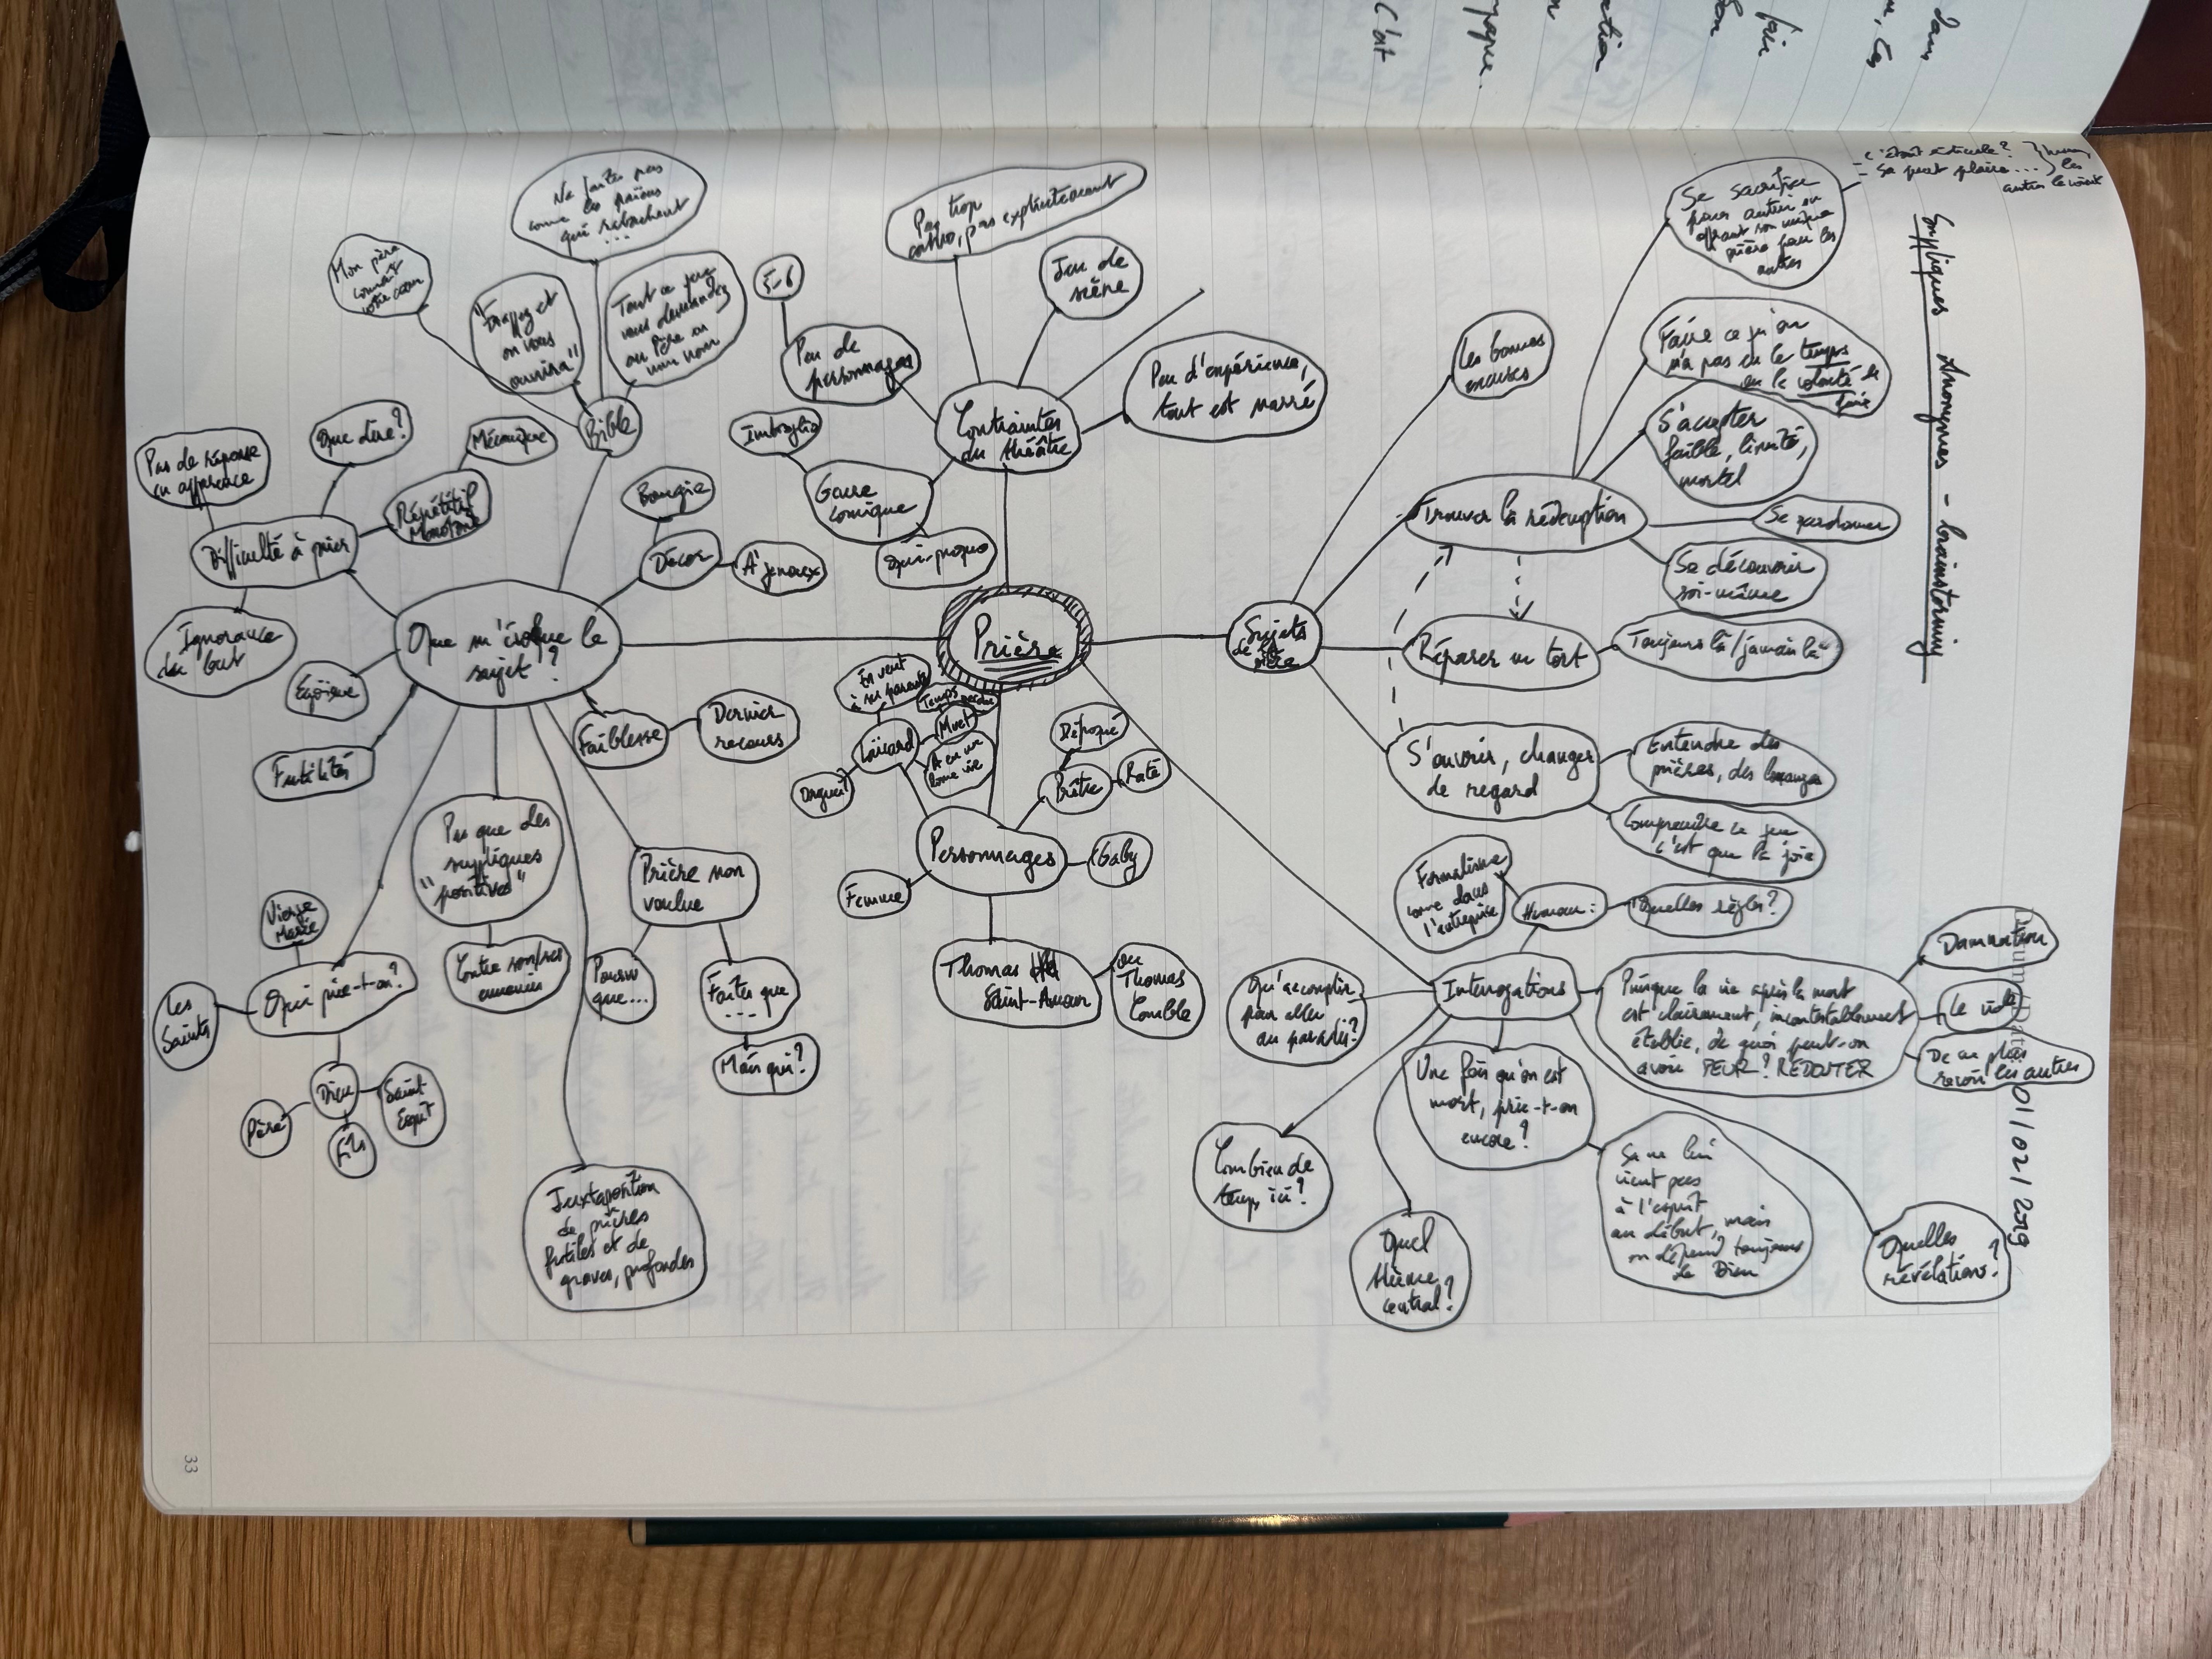 Suppliques Anonymes - brainstorming
01/02/2019
Prière
Que m'évoque le
sujet ?
Difficulté à prier
Pas de réponse
en apparence
Que dire ?
Répétitif
Monotone
Mécanique
Ignorance
du but
Egoïsme
Futilité
Bible
Mon père
connaît
votre cœur
"Frappez et
on vous
ouvrira"
Ne faites pas
comme les païens
qui rabachent
...
Tout ce que
vous demandez
au Père en
mon nom
Décor
Bougie
À genoux
Faiblesse
Dernier
recours
Pas que des
suppliques
"positives"
Contre son/ses
ennemis
Prière non
voulue
Pourvu
que...
Faites que
...
Mais qui ?
Juxtaposition
de prières
futiles et de
graves, profondes
Qui prie-t-on ?
Vierge
Marie
Les
Saints
Dieu
Père
Fils
Saint
Esprit
Contraintes
du théâtre
Pas trop
catho, pas explicitement
Jeu de
scène
Peu d'expérience,
tout est narré
Peu de
personnages
5-6
Genre
comique
Imbroglio
Qui-proquo
Personnages
En veut
à ses parents
Temps perdu
Muet
A eu une
bonne vie
Orgueil
Prêtre
Défroqué
Raté
Gaby
Femme
Thomas
Saint-Amour
ou
Thomas
Comble
Sujets
de la
pièce
Les bonnes
excuses
Trouver la rédemption
Se sacrifier
pour autrui en
offrant son unique
prière pour les
autres
- c'était ridicule ?
- Ça peut plaire...
les
autres le voient
Faire ce qu'on
n'a pas eu le temps
ou la volonté de
faire
S'accepter
faible, limité,
mortel
Se pardonner
Se découvrir
soi-même
Réparer un tort
Toujours là / jamais là
S'ouvrir, changer
de regard
Entendre des
prières, des louanges
Comprendre ce que
c'est que la joie
Interrogations
Humour :
Formalisme
comme dans
l'entreprise
Quelles règles ?
Qu'accomplir
pour aller
au paradis ?
Puisque la vie après la mort
est clairement, incontestablement
établie, de quoi peut-on
avoir PEUR ? REDOUTER
Damnation
Le vide
De ne plus
revoir les autres
Une fois qu'on est
mort, prie-t-on
encore ?
Ça ne lui
vient pas
à l'esprit
au début, mais
on dépend toujours
de Dieu
Combien de
temps ici ?
Quel
thème
central ?
Quelles
révélations ?
33